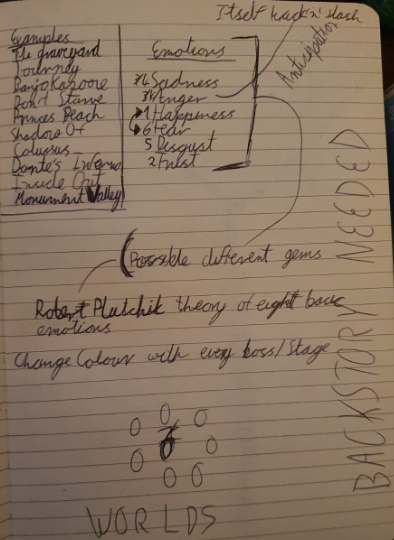 Itself hack n' slash
Anticipation
Examples
The graveyard
Journey
Banjo Kazooie
Don't Starve
Princes Peach
Shadow Of
Colussus
Dante's Inferno
Inside Out
Monument Valley
Emotions
Sadness
Anger
1 Happiness
6 Fear
5 Disgust
2 Trust
Possible different gems
Robert Plutchik theory of eight basic
emotions
Change Colour with every boss/Stage
WORLDS
BACKSTORY NEEDED